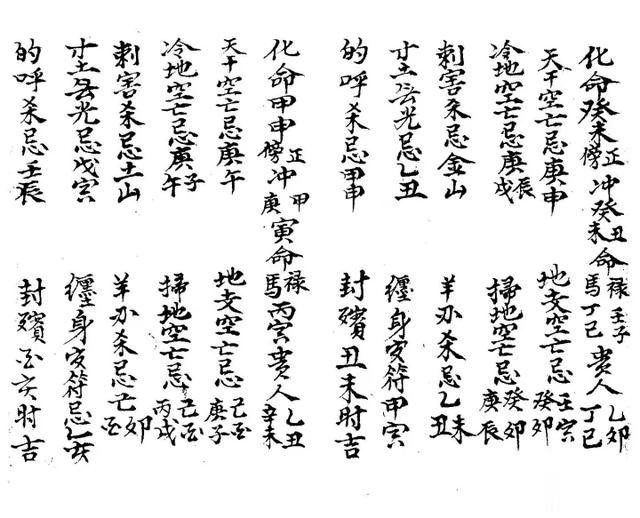 化命癸未正傍冲癸丑未命禄壬子馬丁巳贵人乙卯丁巳
天干空亡忌庚申 地支空亡忌壬寅癸卯
冷地空亡忌庚辰戌 掃地空亡忌癸卯庚辰
刺害杀忌金山 羊刃杀忌乙丑未
寸土无光忌乙丑 纏身安符甲寅
的呼杀忌甲申 封殯丑未时吉
化命甲申正傍冲甲庚寅命禄馬丙寅贵人乙丑辛未
天干空亡忌庚午 地支空亡忌己酉庚子
冷地空亡忌庚子午 掃地空亡忌己酉丙戌
刺害杀忌土山 羊刃杀忌己卯酉
寸土无光忌戊寅 纏身安符忌乙亥
的呼杀忌壬辰 封殯酉亥时吉